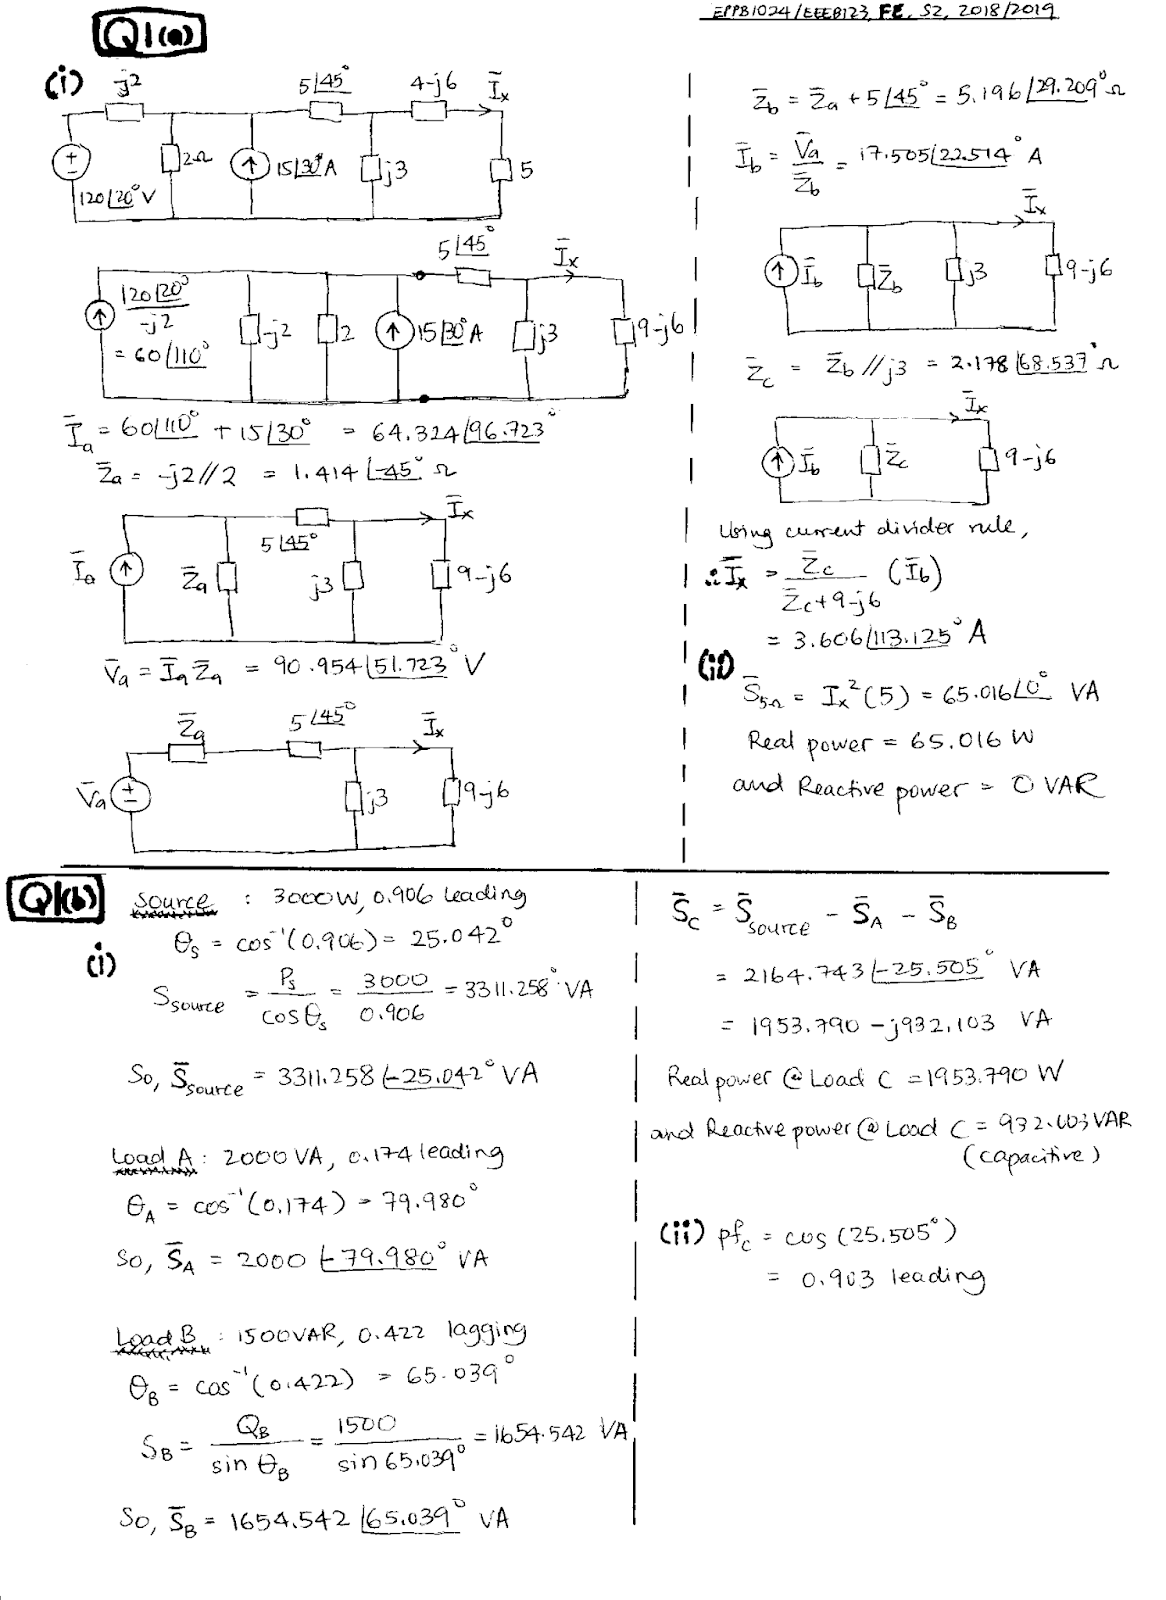 EPPB1024/EEEB123, FE, S2, 2018/2019
Q1(a)
(i)
j2
5∠45°
4-j6
Īx
2Ω
15∠30° A
j3
5
120∠20° V
5∠45°
Īx
120∠20°
-j2
= 60∠110°
-j2
2
15∠30° A
j3
9-j6
Īa = 60∠110° + 15∠30° = 64.324∠96.723°
Z̄a = -j2//2 = 1.414∠-45° Ω
Īx
5∠45°
Īa
Z̄a
j3
9-j6
V̄a = Īa Z̄a = 90.954∠51.723° V
Z̄a
5∠45°
Īx
V̄a
j3
9-j6
Z̄b = Z̄a + 5∠45° = 5.196∠29.209° Ω
Īb = V̄a / Z̄b = 17.505∠22.514° A
Īx
Īb
Z̄b
j3
9-j6
Z̄c = Z̄b // j3 = 2.178∠68.537° Ω
Īx
Īb
Z̄c
9-j6
Using current divider rule,
∴ Īx = Z̄c / (Z̄c+9-j6) (Īb)
= 3.606∠113.125° A
(ii)
S̄5Ω = Ix²(5) = 65.016∠0° VA
Real power = 65.016 W
and Reactive power = 0 VAR
Q1(b)
Source : 3000W, 0.906 leading
(i)
θs = cos⁻¹(0.906) = 25.042°
Ssource = Ps / cos θs = 3000 / 0.906 = 3311.258 VA
So, S̄source = 3311.258∠-25.042° VA
Load A : 2000 VA, 0.174 leading
θA = cos⁻¹(0.174) = 79.980°
So, S̄A = 2000∠-79.980° VA
Load B : 1500VAR, 0.422 lagging
θB = cos⁻¹(0.422) = 65.039°
SB = QB / sin θB = 1500 / sin 65.039° = 1654.542 VA
So, S̄B = 1654.542∠65.039° VA
S̄C = S̄source - S̄A - S̄B
= 2164.743∠-25.505° VA
= 1953.790 - j932.103 VA
Real power @ Load C = 1953.790 W
and Reactive power @ Load C = 932.103 VAR
(capacitive)
(ii) pfc = cos (25.505°)
= 0.903 leading